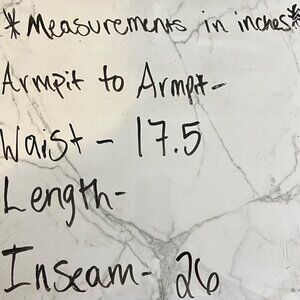 *Measurements in inches*
Armpit to Armpit-
Waist - 17.5
Length-
Inseam- 26